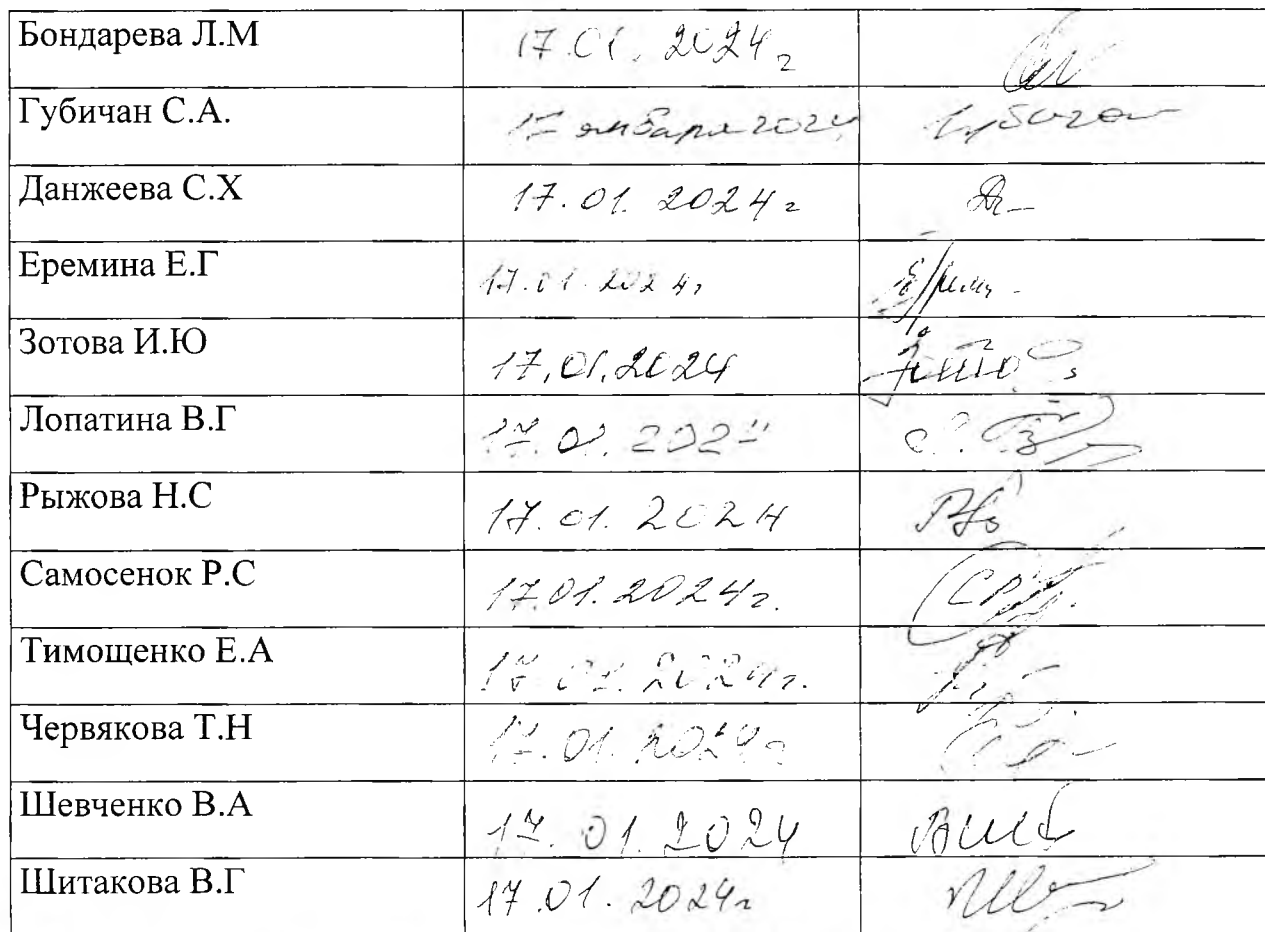 Бондарева Л.М 17.01.2024г
Губичан С.А. 17 января 2024 Губичан
Данжеева С.Х 17.01.2024г
Еремина Е.Г 17.01.2024г
Зотова И.Ю 17.01.2024
Лопатина В.Г 17.01.2024
Рыжова Н.С 17.01.2024
Самосенок Р.С 17.01.2024г.
Тимощенко Е.А 17.01.2024г.
Червякова Т.Н 17.01.2024г
Шевченко В.А 17.01.2024
Шитакова В.Г 17.01.2024г